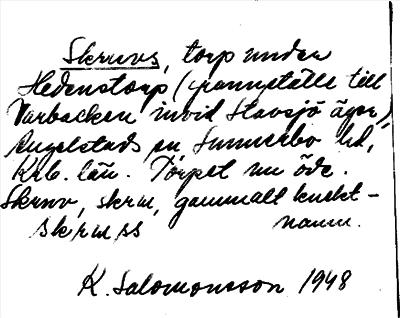 Skruvs, torp under
Hedenstorp (grannställe till
Narbacken invid Stavsjö ägor)
Angelstads sn, Sunnerbo hd,
Krb. län. Torpet nu öde.
Skruv, skrur, gammalt knekt-
skruss namn.
K. Salomonsson 1948